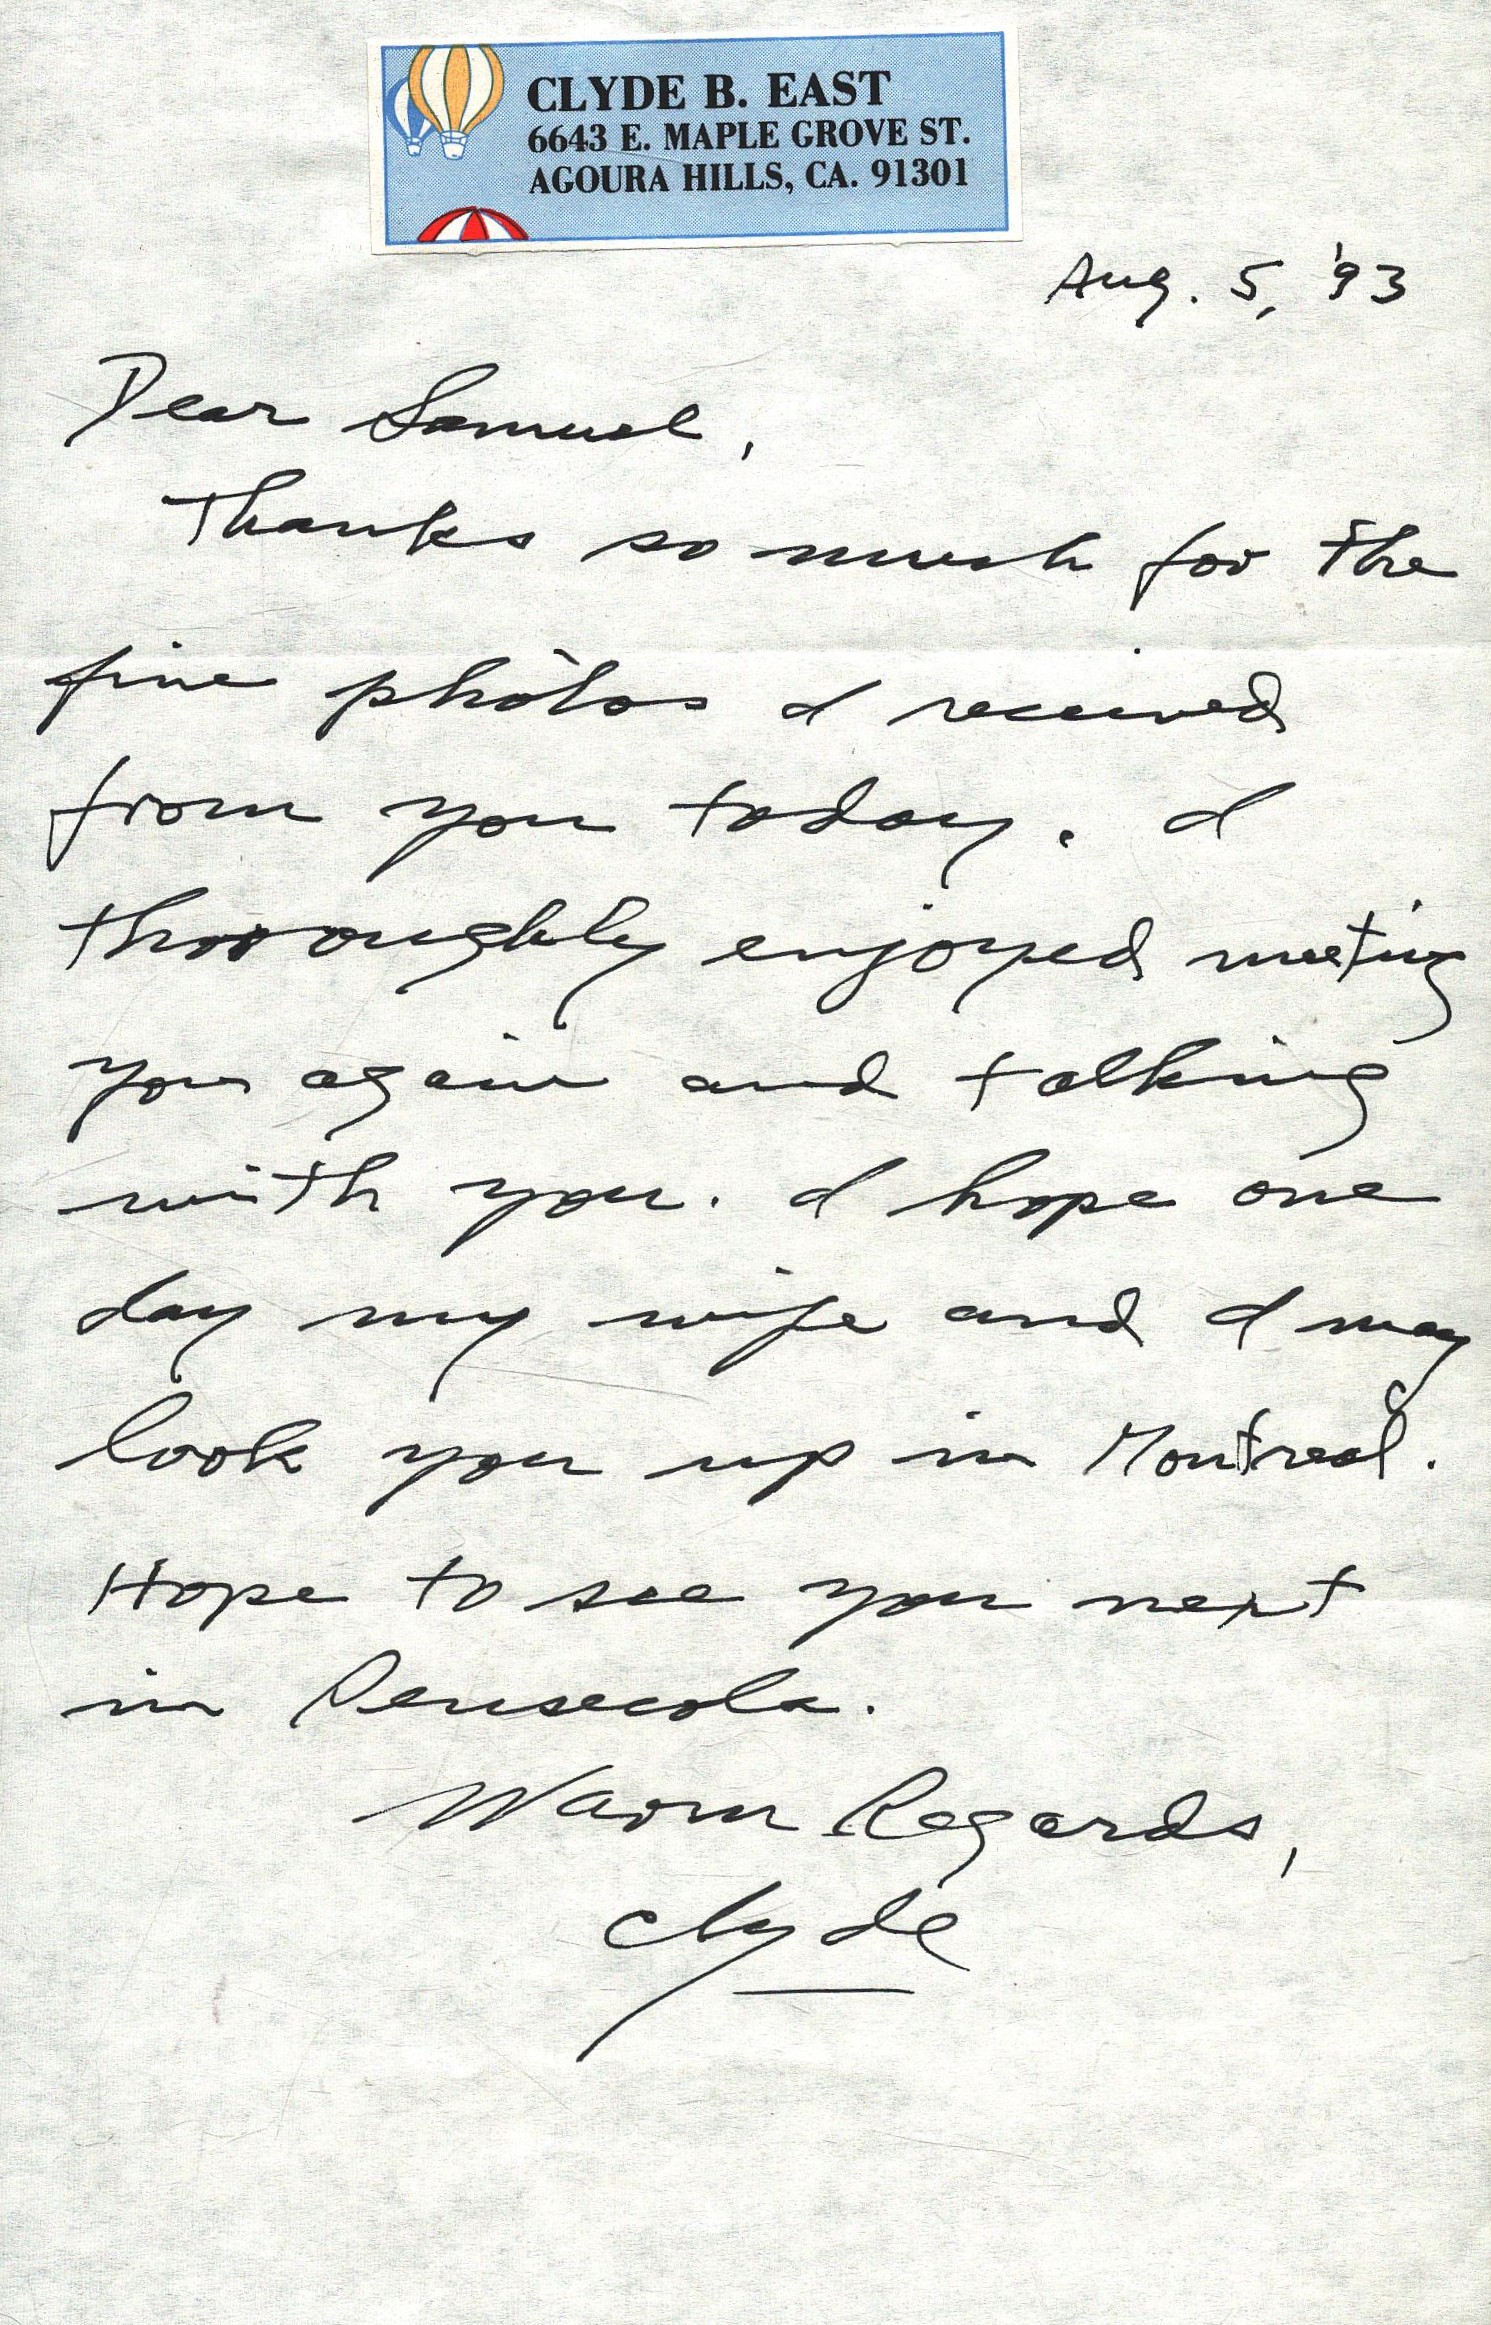 CLYDE B. EAST
6643 E. MAPLE GROVE ST.
AGOURA HILLS, CA. 91301
Aug. 5, '93
Dear Samuel,
Thanks so much for the
fine photos I received
from you today. I
thoroughly enjoyed meeting
you again and talking
with you. I hope one
day my wife and I may
look you up in Montreal.
Hope to see you next
in Pensecola.
Warm Regards,
Clyde